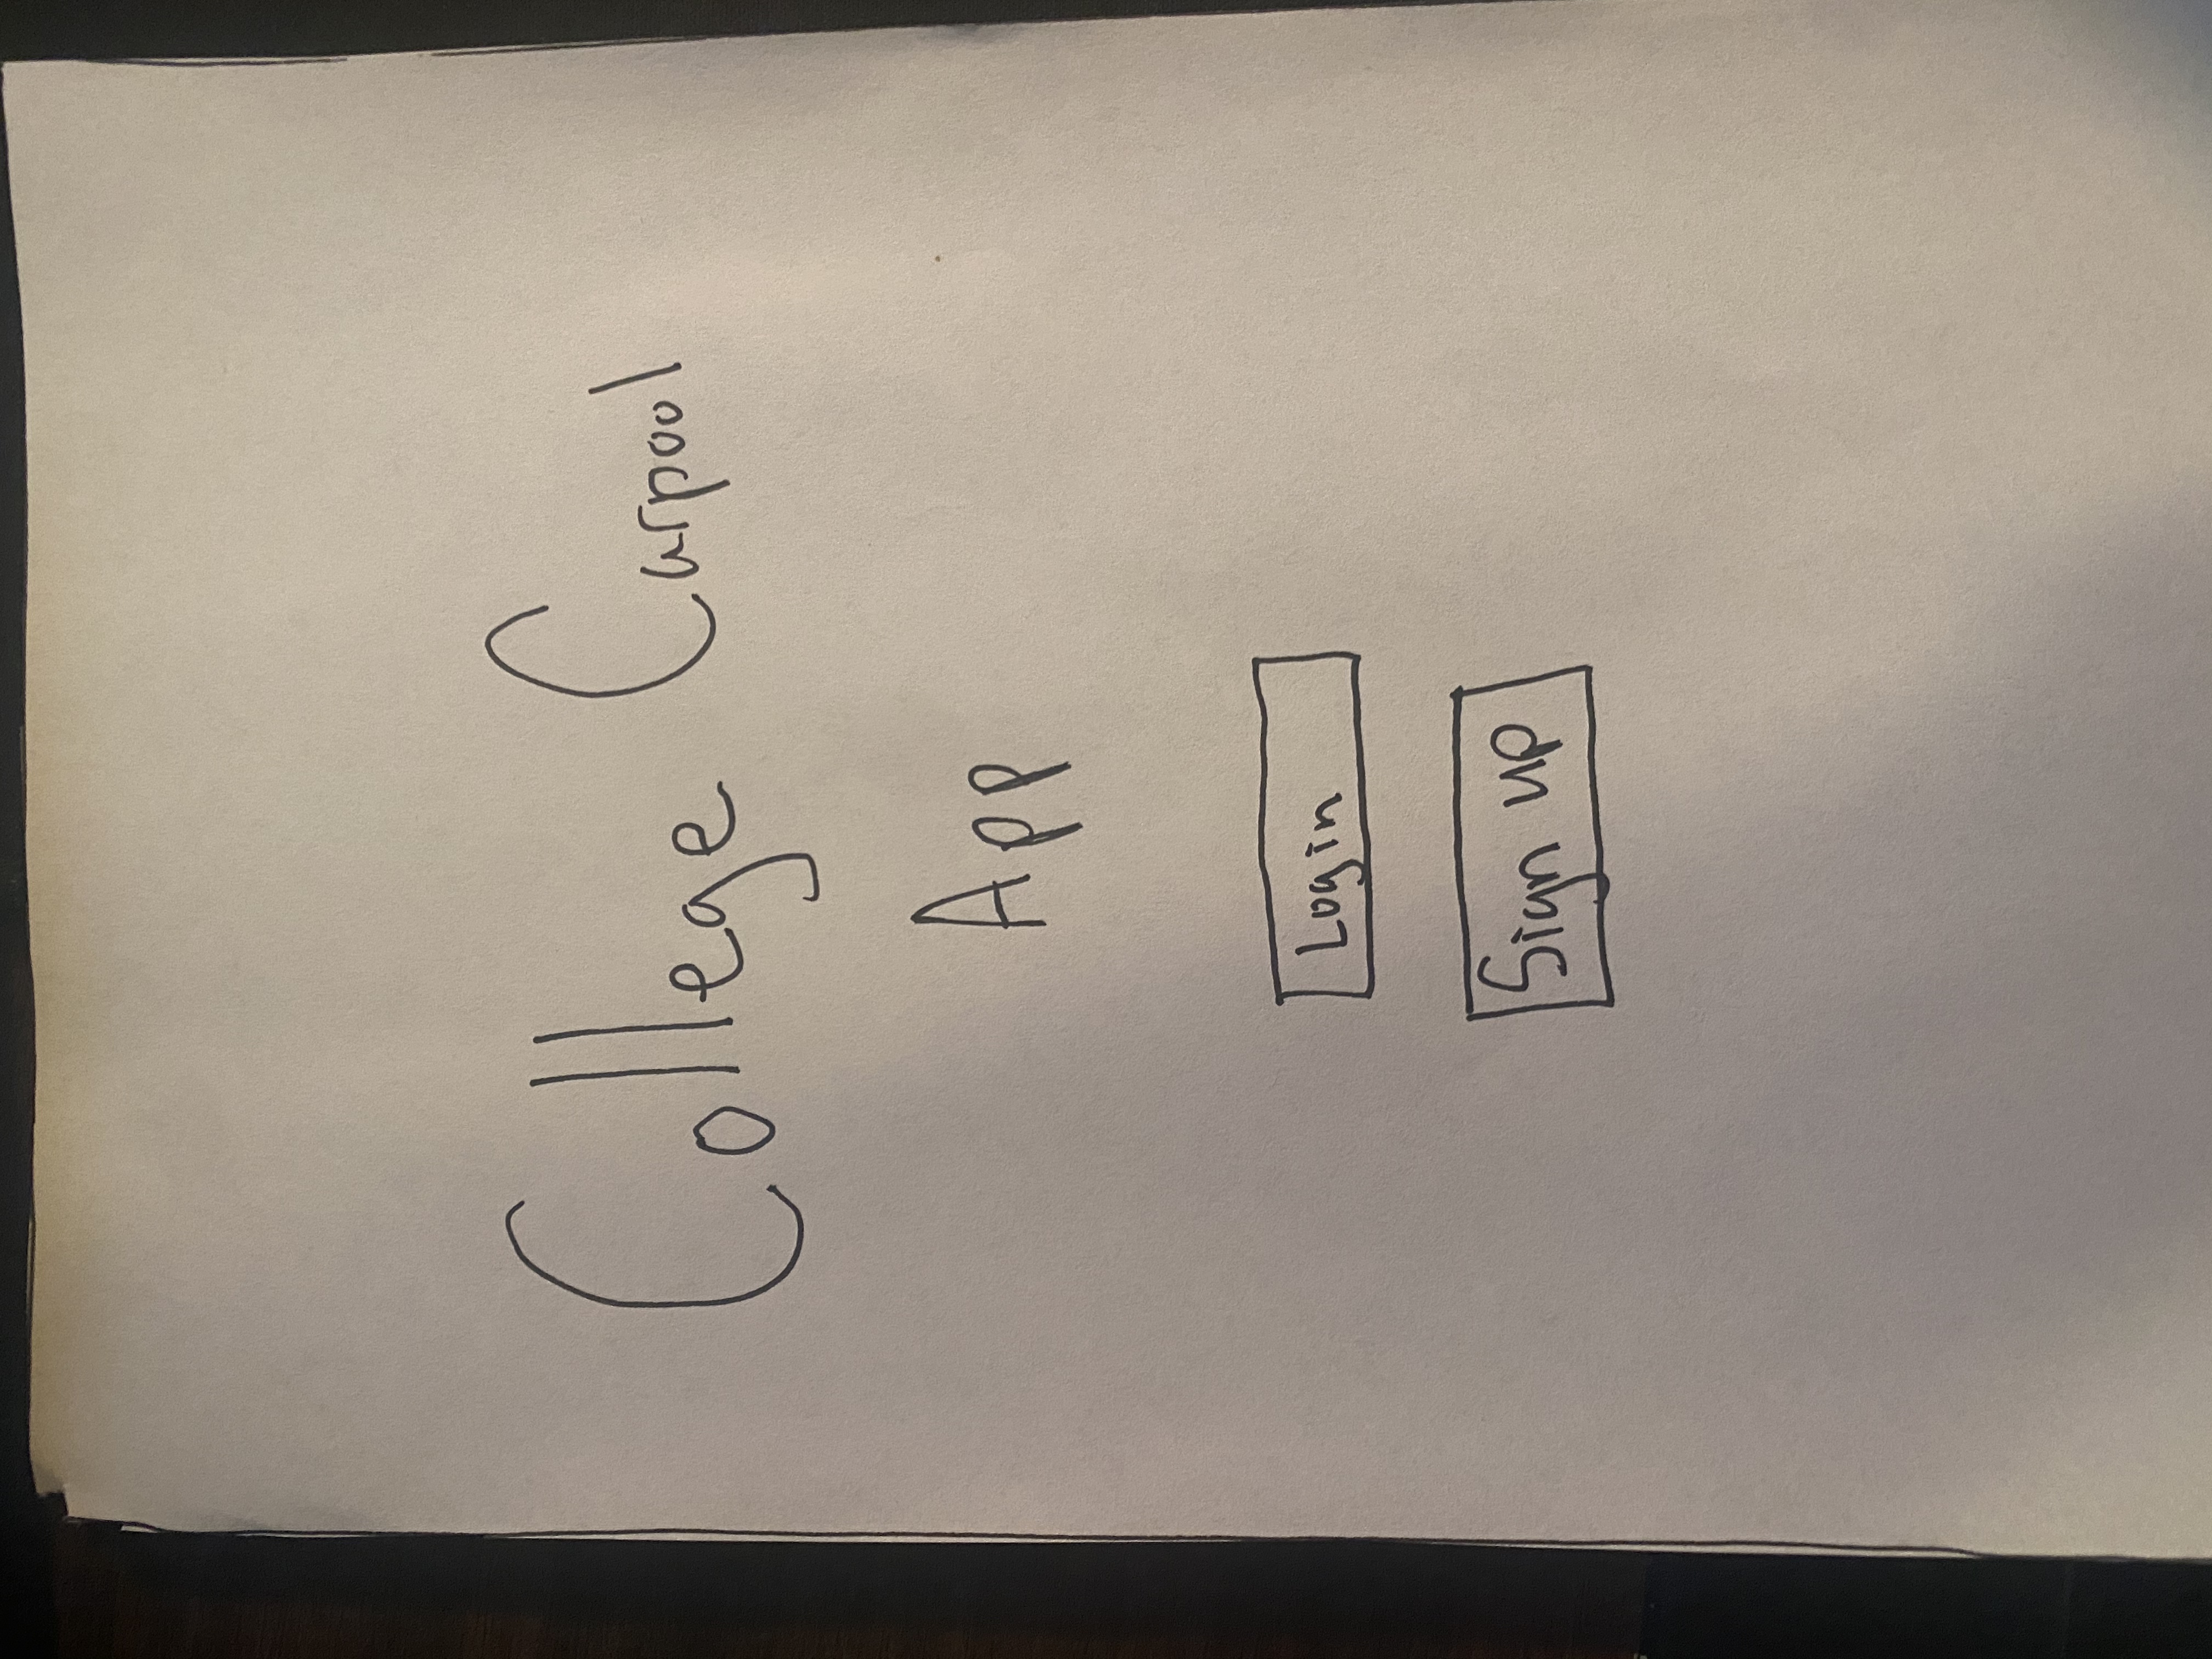 College Carpool
App
Login
Sign up